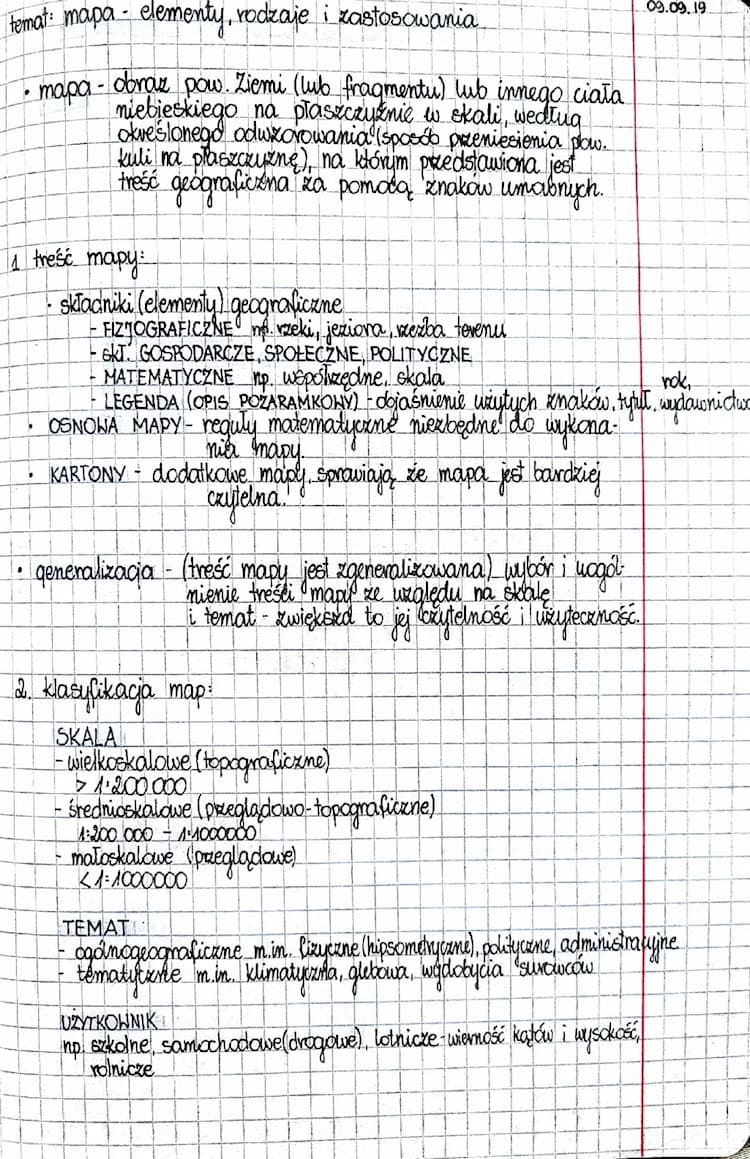 09.09.19
temat: mapa - elementy, rodzaje i zastosowania
• mapa - obraz pow. Ziemi (lub fragmentu) lub innego ciała
niebieskiego na płaszczyźnie w skali, według
określonego odwzorowania (sposób przeniesienia pow.
kuli na płaszczyznę), na którym przedstawiona jest
treść geograficzna za pomocą znaków umownych.
1 treść mapy:
• składniki (elementy) geograficzne
- FIZJOGRAFICZNE np. rzeki, jeziora, rzeźba terenu
- SKŁ. GOSPODARCZE, SPOŁECZNE, POLITYCZNE
- MATEMATYCZNE np. współrzędne, skala
- LEGENDA (OPIS POZARAMKOWY) - objaśnienie użytych znaków, tytuł, rok, wydawnictwo
• OSNOWA MAPY - reguły matematyczne niezbędne do wykona-
nia mapy.
• KARTONY - dodatkowe mapy, sprawiają że mapa jest bardziej
czytelna.
• generalizacja - (treść mapy jest zgeneralizowana) wybór i uogól-
nienie treści mapy ze względu na skalę
i temat - zwiększa to jej czytelność i użyteczność.
2. klasyfikacja map:
SKALA
- wielkoskalowe (topograficzne)
> 1:200 000
- średnioskalowe (przeglądowo-topograficzne)
1:200 000 - 1:1000000
- małoskalowe (przeglądowe)
< 1:1000000
TEMAT
- ogólnogeograficzne m.in. fizyczne (hipsometryczne), polityczne, administracyjne
- tematyczne m.in. klimatyczna, glebowa, wydobycia surowców
UŻYTKOWNIK
np. szkolne, samochodowe (drogowe), lotnicze - wierność kątów i wysokość,
rolnicze